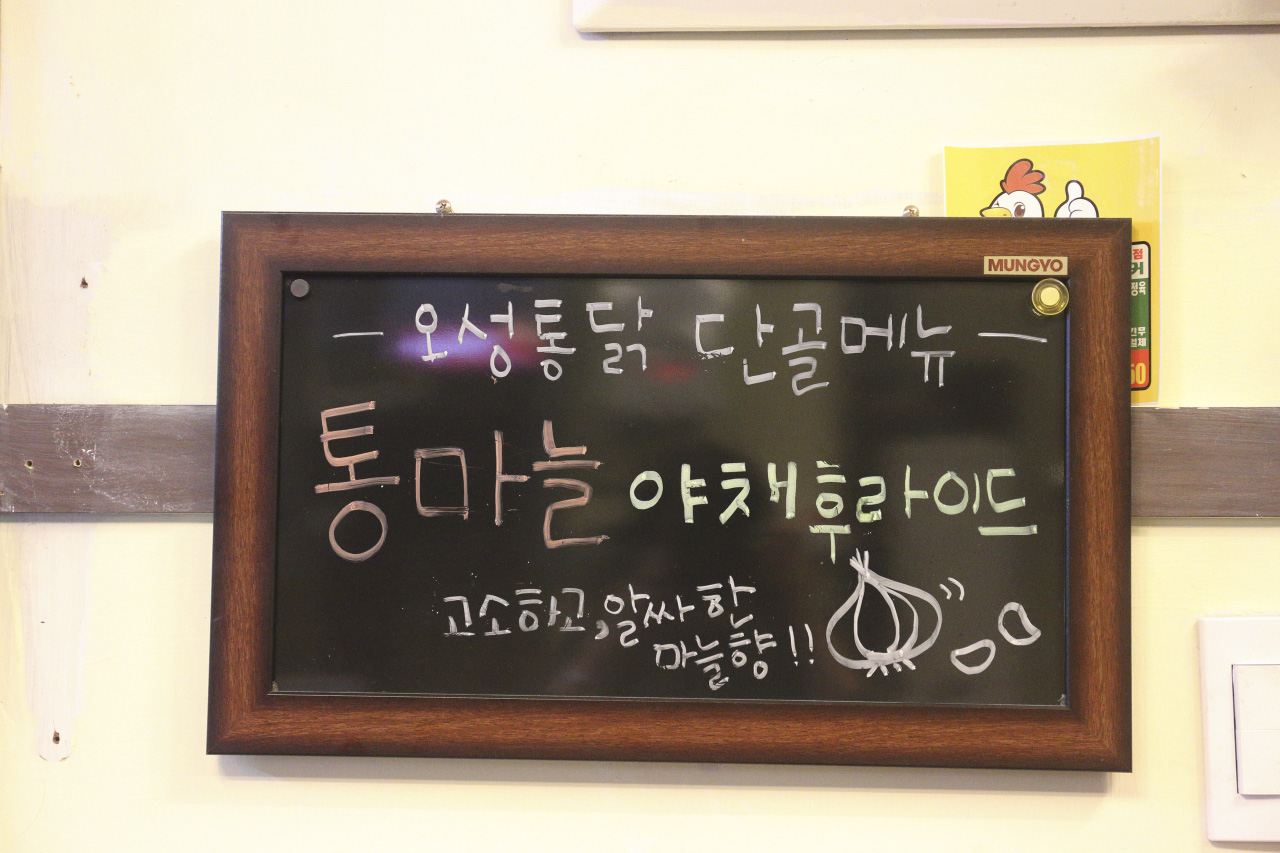 MUNGYO
- 오성통닭 단골메뉴 -
통마늘 야채후라이드
고소하고, 알싸한
마늘향!!
점
커
정육
간무
결제
50